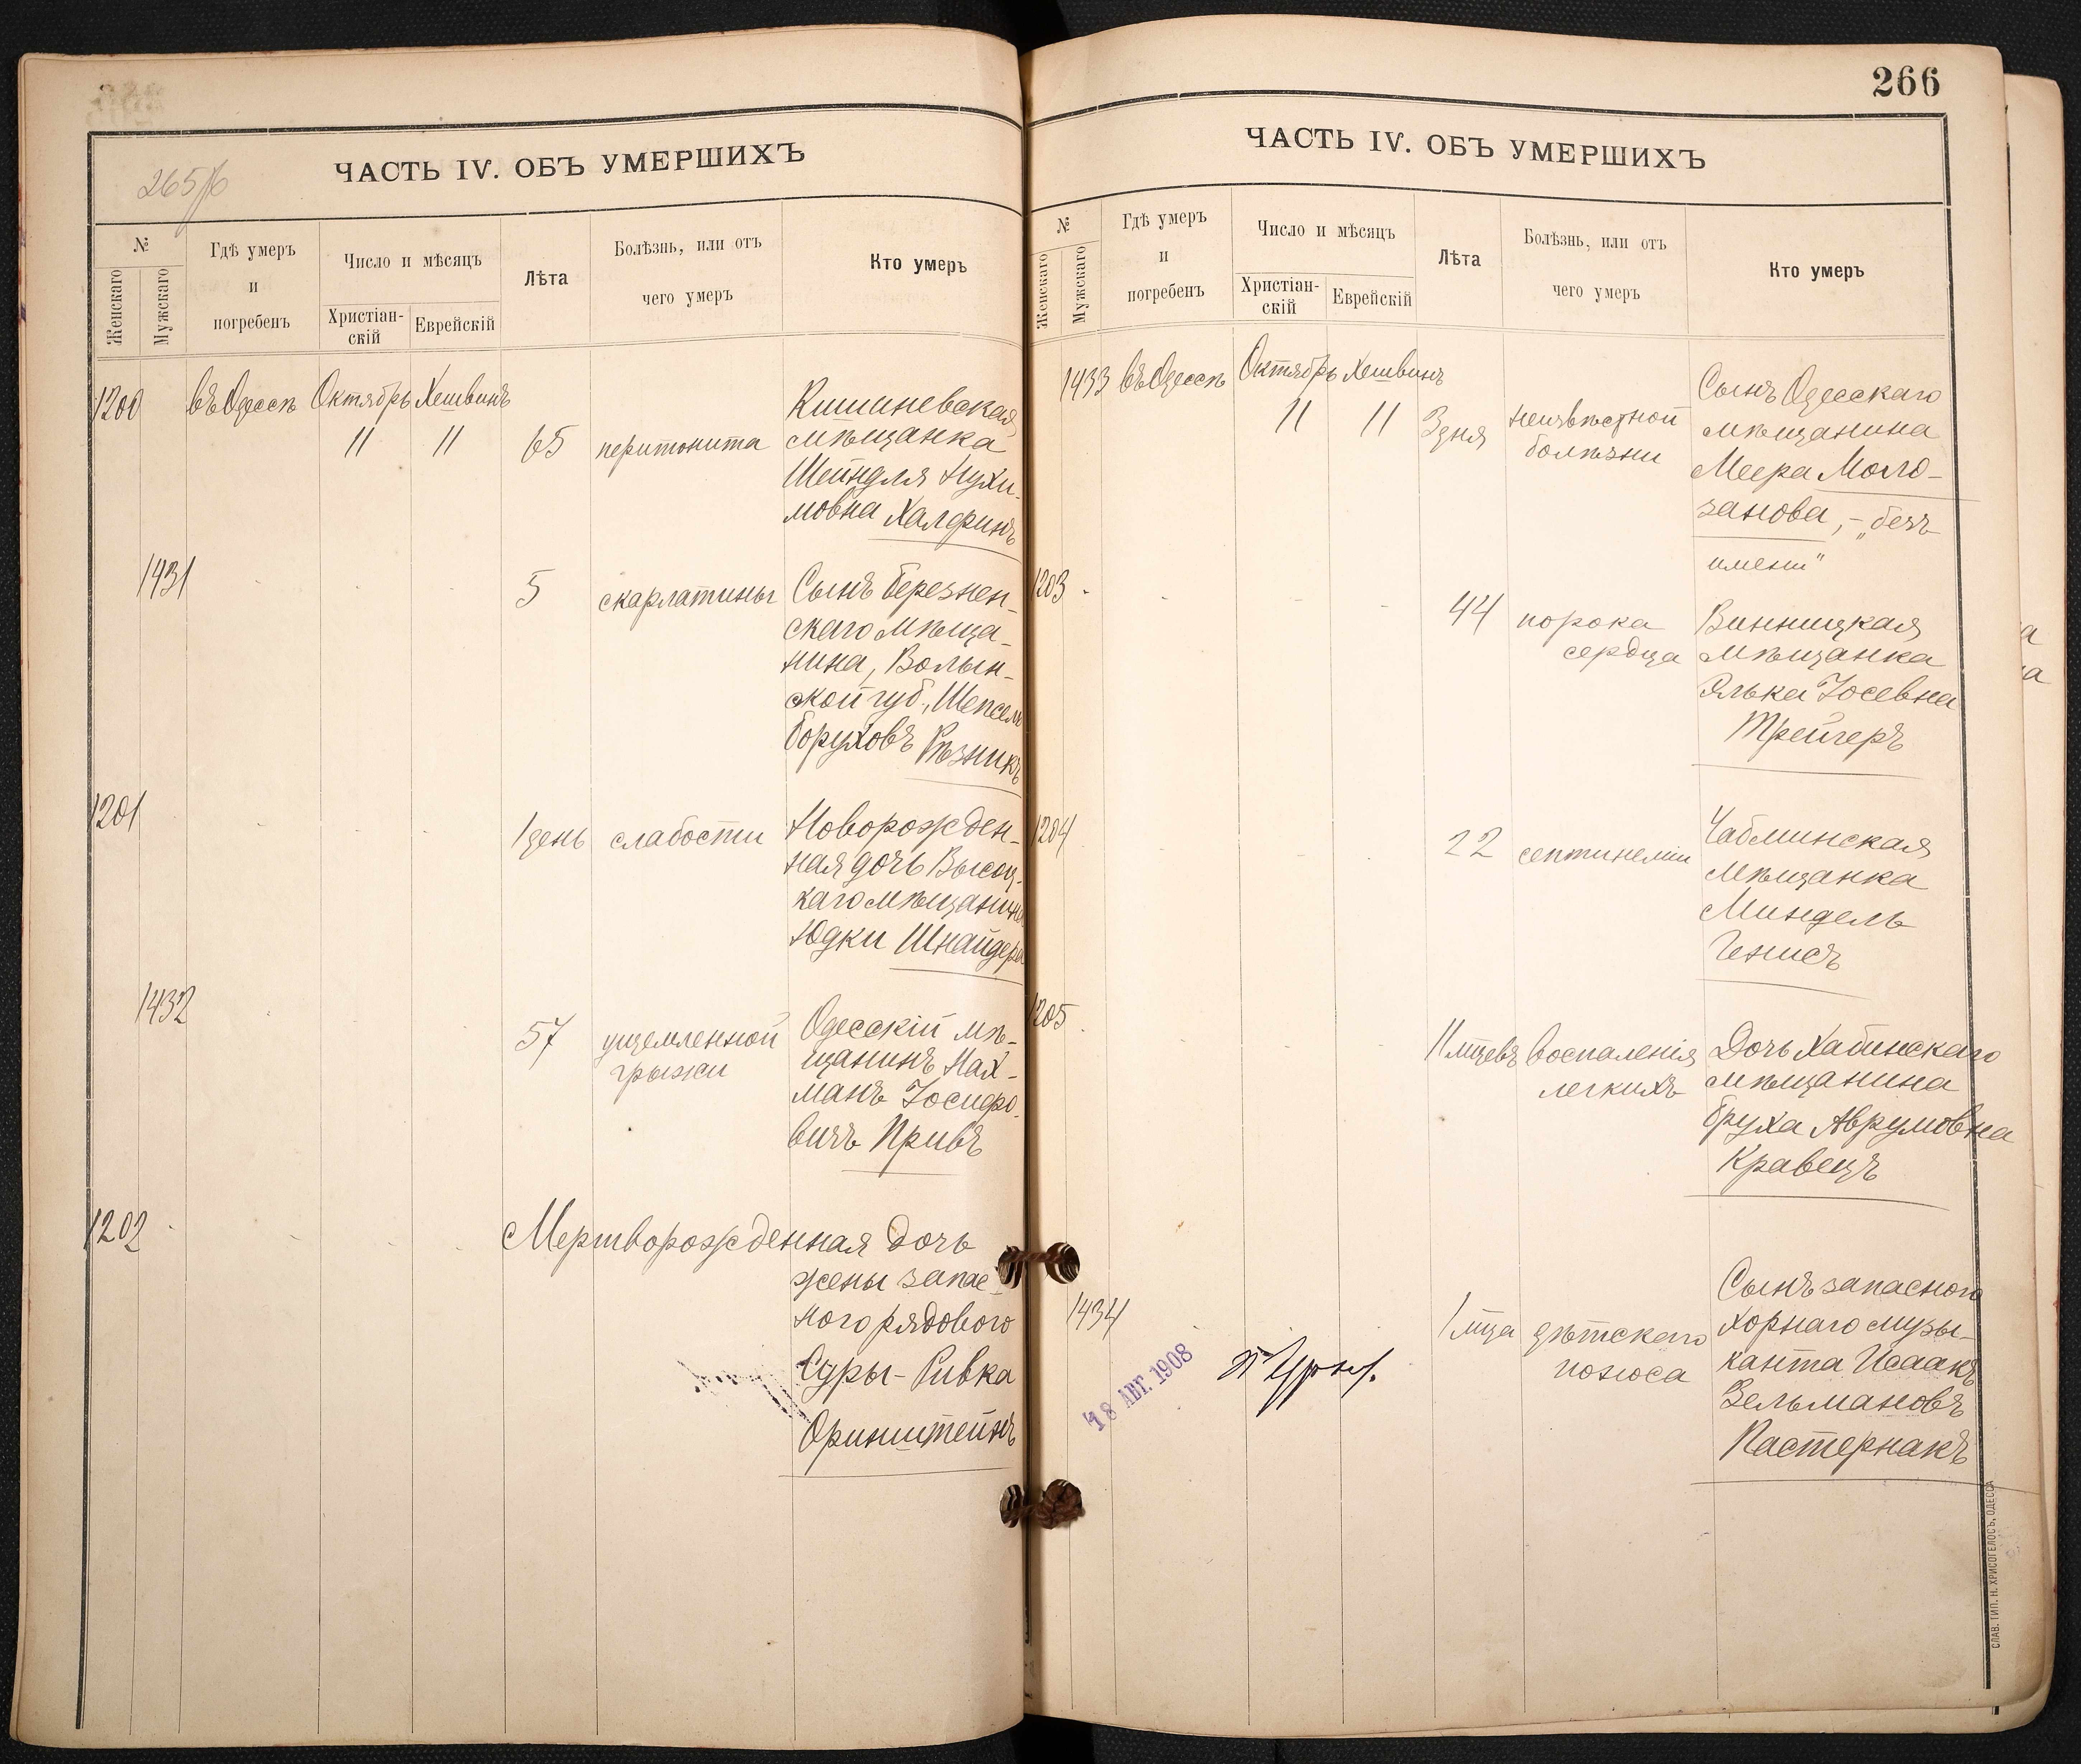 265/б
ЧАСТЬ IV. ОБЪ УМЕРШИХЪ
№
Женскаго
Мужскаго
Гдѣ умеръ
и
погребенъ
Число и мѣсяцъ
Христіан-
скій
Еврейскій
Лѣта
Болѣзнь, или отъ
чего умеръ
Кто умеръ
1200 въ Одессѣ Октябрь Хешвинъ
11 11 65 перитонита
Кишиневская
мѣщанка
Шейндля Нухи-
мовна Халфинъ
1431 5 скарлатины
Сынъ Березнен-
скаго мѣща-
нина, Волын-
ской губ., Шепсель
Боруховъ Рѣзникъ
1201 1 день слабости
Новорожден-
ная дочь Высоц-
каго мѣщанина
Юдки Шнайдера
1432 57 ущемленной
грыжи
Одесскій мѣ-
щанинъ Нах-
манъ Іосифо-
вичъ Привъ
1202 Мертворожденная дочь
жены запас-
ного рядового
Суры-Ривка
Оринштейнъ
266
ЧАСТЬ IV. ОБЪ УМЕРШИХЪ
№
Женскаго
Мужскаго
Гдѣ умеръ
и
погребенъ
Число и мѣсяцъ
Христіан-
скій
Еврейскій
Лѣта
Болѣзнь, или отъ
чего умеръ
Кто умеръ
1433 въ Одессѣ Октябрь Хешвинъ
11 11 3 дня неизвѣстной
болѣзни
Сынъ Одесскаго
мѣщанина
Меера Моло-
занова, - „безъ
имени"
1203 44 порока
сердца
Винницкая
мѣщанка
Элька Іосевна
Трейгеръ
1204 22 септинеміи
Чабминская
мѣщанка
Миндель
Генисъ
1205 11 мцевъ воспаленія
легкихъ
Дочь Хабинскаго
мѣщанина
Бруха Аврумовна
Кравецъ
1434 1 мца дѣтскаго
поноса
Сынъ запасного
хорнаго музы-
канта Исаакъ
Зельмановъ
Пастернакъ
18 АВГ. 1908
СЛАВ. ТИП. Н. ХРИСОГЕЛОСЪ, ОДЕССА